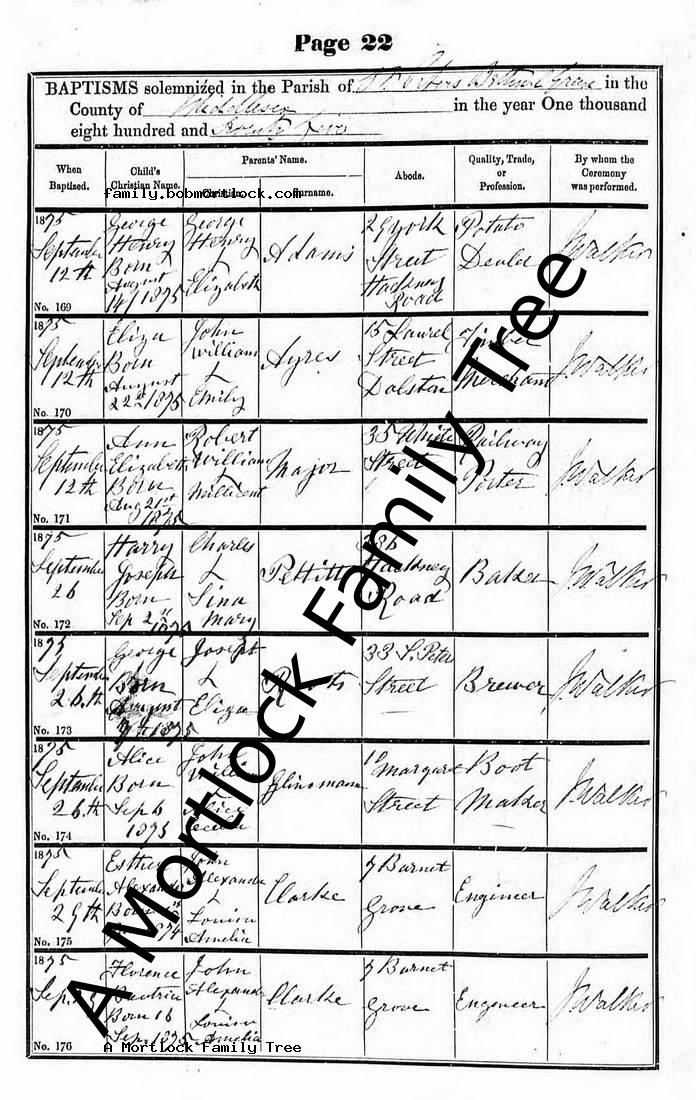 Page 22
BAPTISMS solemnized in the Parish of St Peters Bethnal Green in the
County of Middlesex in the year One thousand
eight hundred and Seventy five
When Baptized.
Child's Christian Name.
Parents' Name.
Christian.
Surname.
Abode.
Quality, Trade, or Profession.
By whom the Ceremony was performed.
family.bobmortlock.com
1875
September
12th
No. 169
George
Henry
Born
August
14th 1875
George
Henry
&
Elizabeth
Adams
29 York
Street
Hackney
Road
Potato
Dealer
J Walker
1875
September
12th
No. 170
Eliza
Born
August
22nd 1875
John
William
&
Emily
Ayres
15 Laurel
Street
Dalston
Timber
Merchant
J Walker
1875
September
12th
No. 171
Ann
Elizabeth
Born
Aug 21st
1875
Robert
William
&
Millicent
Major
35 White
Street
Railway
Porter
J Walker
1875
September
26
No. 172
Harry
Joseph
Born
Sep 2nd
1875
Charles
&
Sina
Mary
Pettitt
Hackney
Road
Baker
J Walker
1875
September
26th
No. 173
George
Born
August
1875
Joseph
&
Eliza
33 S. Peter
Street
Brewer
J Walker
1875
September
26th
No. 174
Alice
Born
Sep 6
1875
John
&
Alice
Glinsmann
Margaret
Street
Boot
Maker
J Walker
1875
September
29th
No. 175
Esther
Alexander
Born
John
Alexander
&
Louisa
Amelia
Clarke
7 Barnet
Grove
Engineer
J Walker
1875
Sep.
No. 176
Florence
Beatrice
Born 16
Sep. 1875
John
Alexander
&
Louisa
Amelia
Clarke
7 Barnet
Grove
Engineer
J Walker
A Mortlock Family Tree
A Mortlock Family Tree